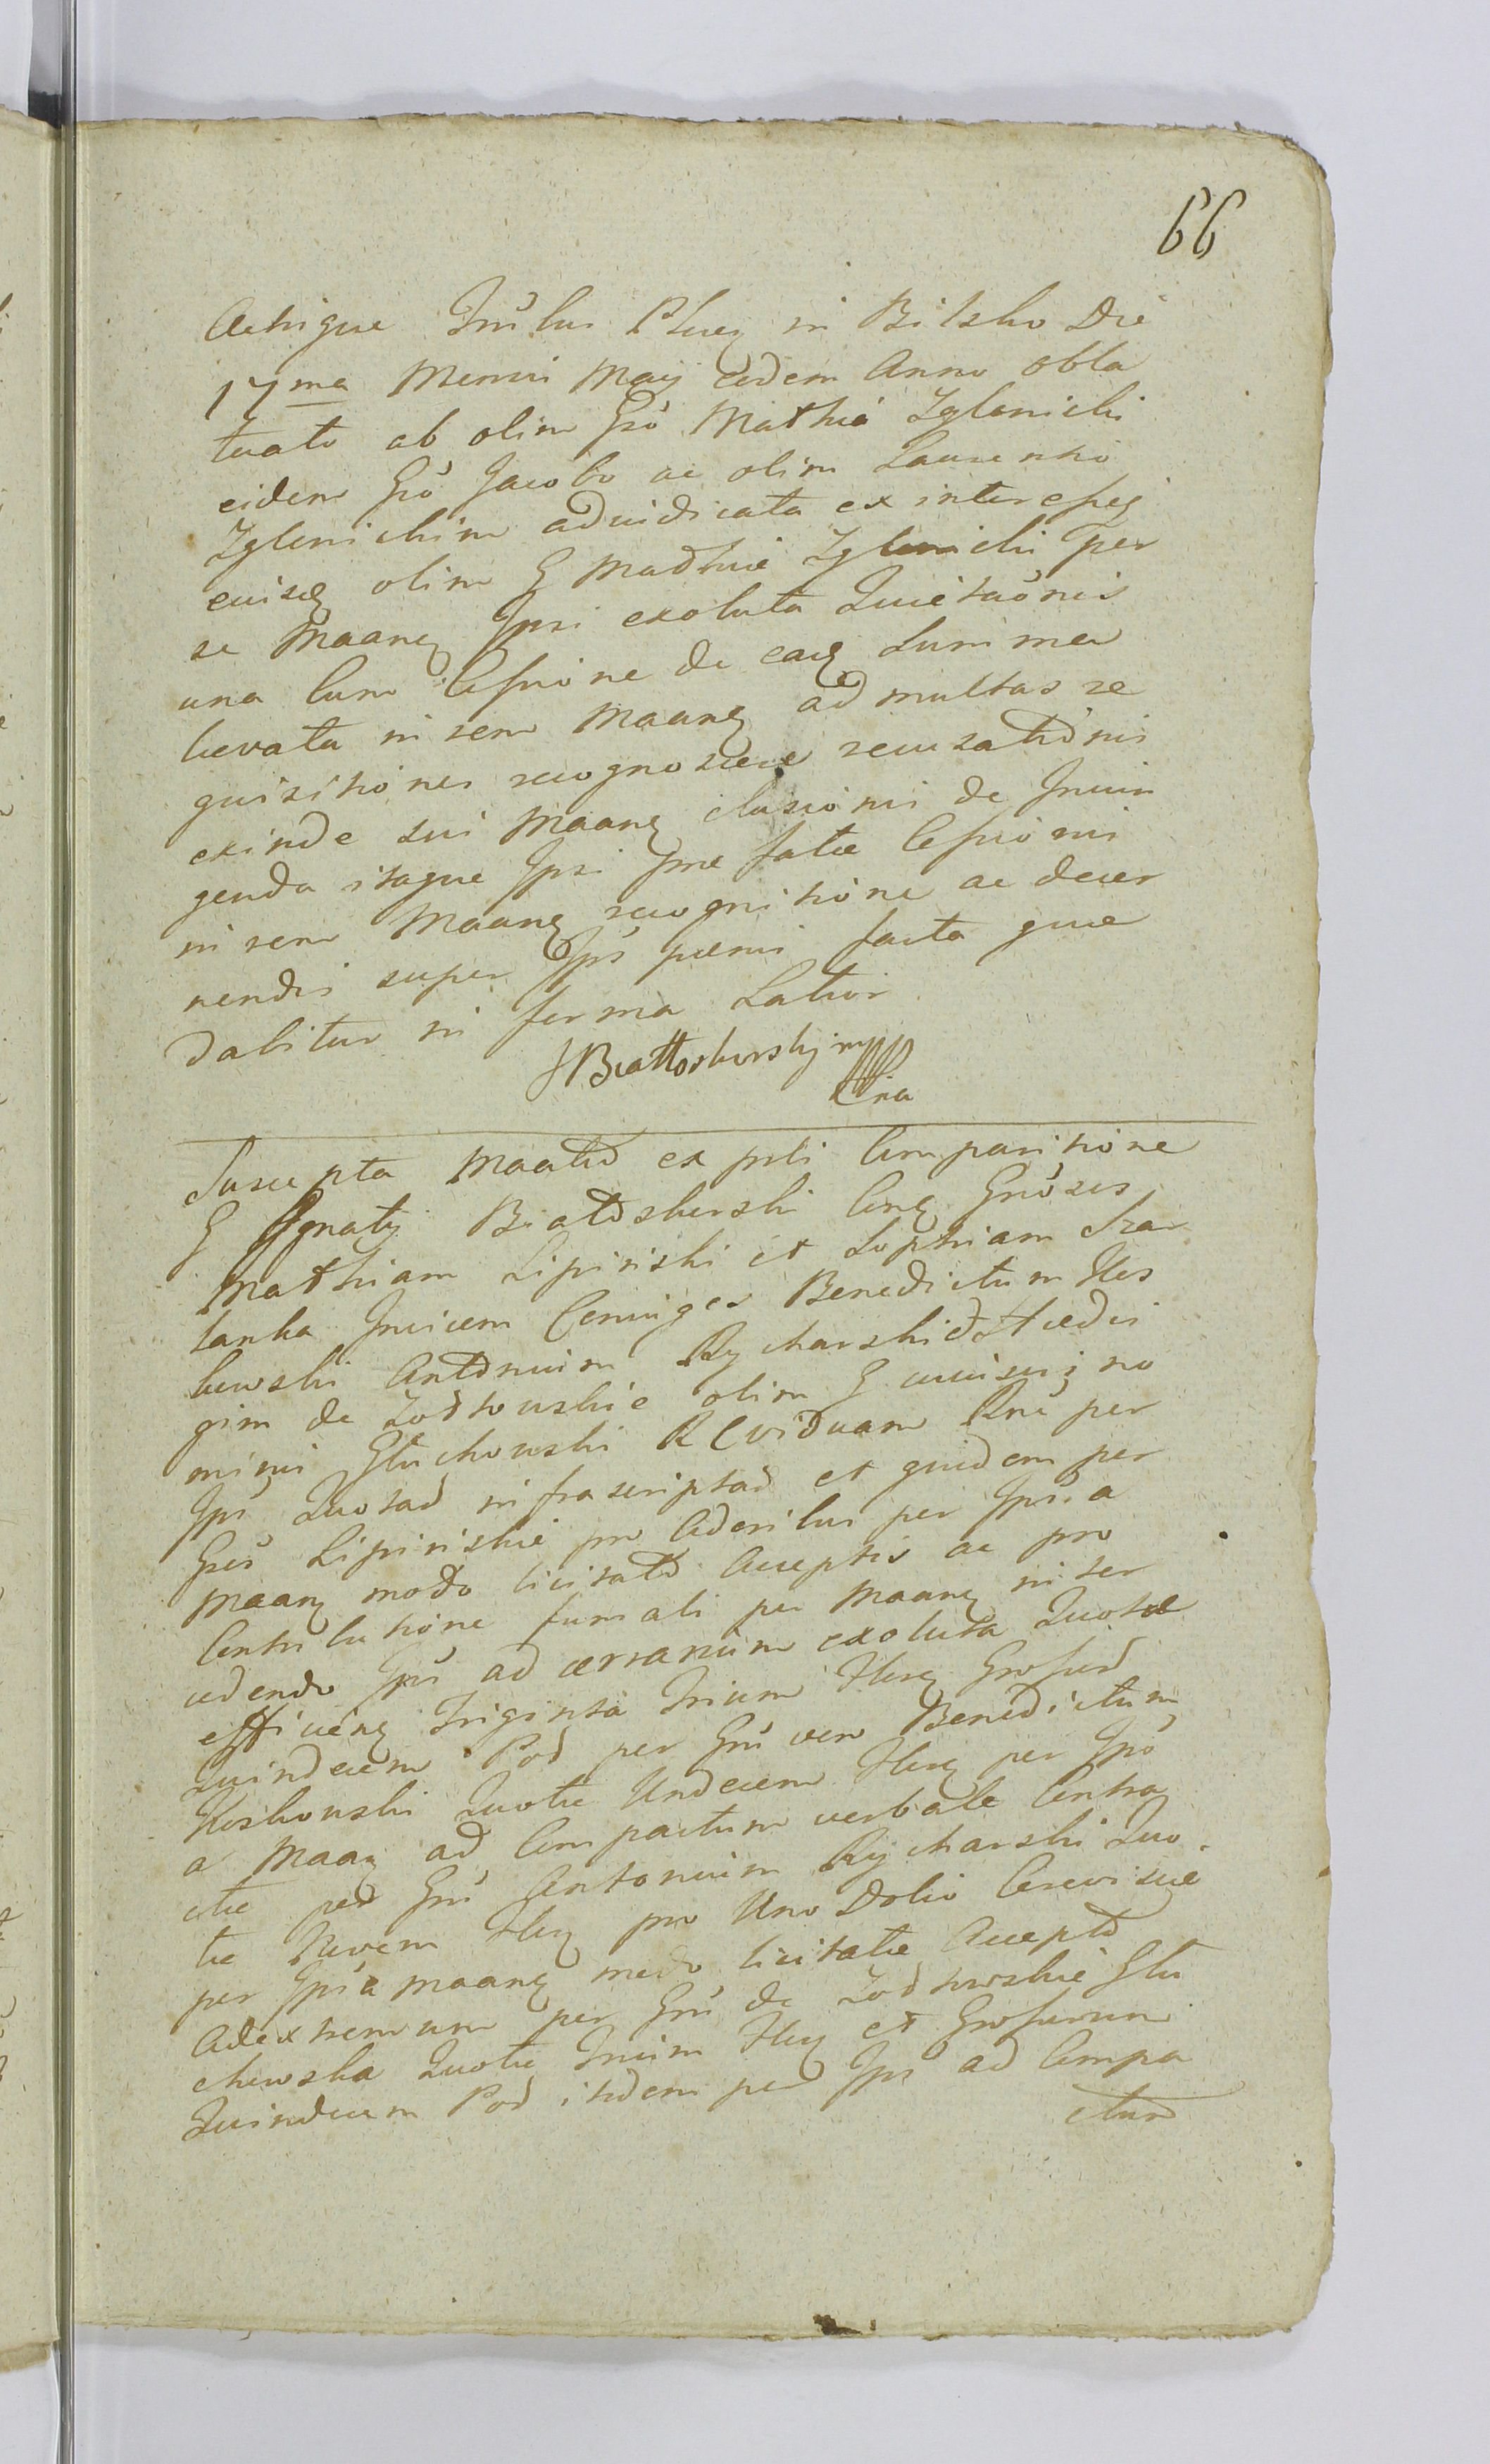 66
Actisque Trŭlus Plusz in Bilsko Die
17ma Mensis Maij eodem Anno obla
tuato ab olim Gsŏ Mathia Zglenicki
eidem Gsŏ Jacobo ac olim Laurentio
Zglenickim adjudicata ex interesse
cuiscq olim G Mathiæ Zglenicki per
se Maanq Ipsi exoluta Quietaŏnis
una Cum Cessione de eaq Summa
levata in rem Maanq ad multas re
quisitiones recognoscere recusationis
exinde sui Maanq clusionis de Injun
genda itaque Ipsi præfatæ Cessionis
in rem Maanq recognitione ac decer
nendis super Ipŏ pœnis facta quæ
dabitur in forma Latior
JBiałłoskurski mpp
Suscepta Maatio ex psti Comparitione
G Ignatij Białoskurski Conq Gnŏsos
Mathiam Lipinski et Sophiam Szar
lanka Invicem Conjuges Benedictum Kos
kowski Antonium Rycharski et Hedvi
gim de Zołtowskie olim G cuiusvis no
minis Głuchowski R Viduam Rne per
Ipŏ Quotas infrascriptas et quidem per
Gsŏ Lipinskie pro Aderibus per Ipsŏ a
Maanq modo licitatŏ Acceptis ac pro
Contributione fumali per Maanq inter
cedendo Ipŏ ad ærrarium exoluta Quotæ
efficienq Triginta Trium Flenq Grossŏ
Quindecem Pol per Gnŏ vero Benedictum
Koskowski Quotæ Undecem Flenq per Ipŏ
a Maanq ad Compactum verbale Contra
ctæ per Gnŏ Antonium Rycharski Quo
tæ Novem Flenq pro Uno Dolio Cerevisiæ
per Ipŏ a Maanq modo licitatæ Acceptŏ
Adextremum per Gnŏ de Zołtowskie Głu
chowska Quotæ Trium Flenq et Grossorum
Quindecem Pol itidem per Ipŏ ad Compa
ctum